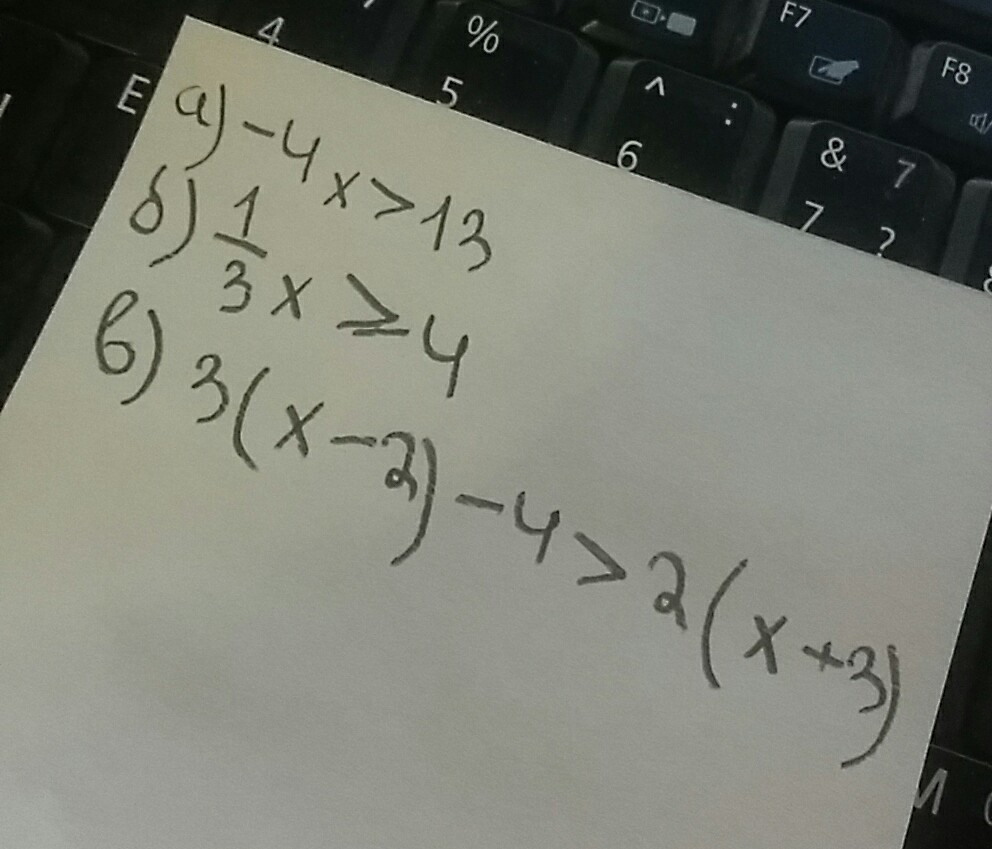 4
%
5
^
:
6
F7
F8
& 7
7 ?
E
а) -4x > 13
б) 1/3 x ≥ 4
в) 3(x-2) -4 > 2(x+3)